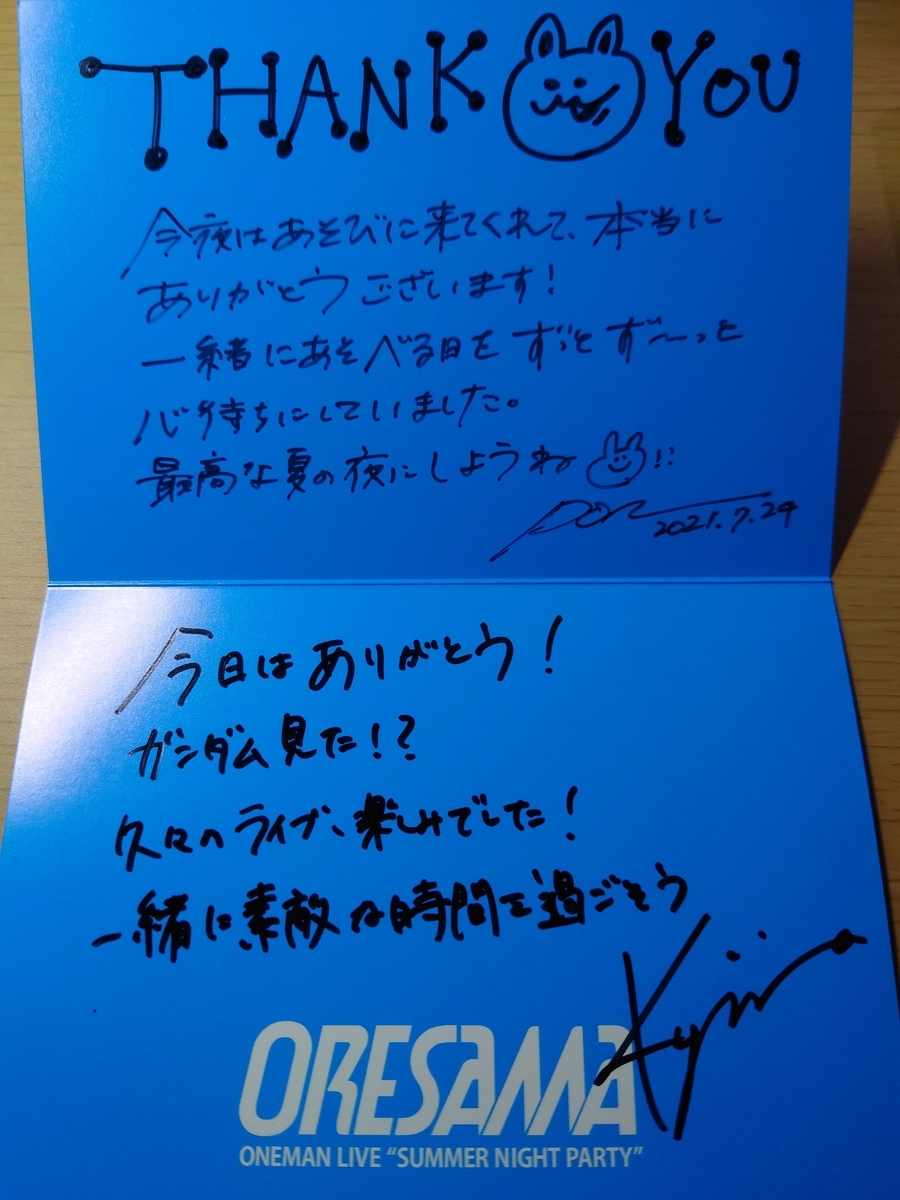 THANK YOU
今夜はあそびに来てくれて、本当に
ありがとうございます!
一緒にあそべる日をずっとず〜っと
心待ちにしていました。
最高な夏の夜にしようね!!
PON 2021.7.24
今日はありがとう!
ガンダム見た!?
久々のライブ、楽しみでした!
一緒に素敵な時間を過ごそう
Kojima
ORESAMA
ONEMAN LIVE “SUMMER NIGHT PARTY”